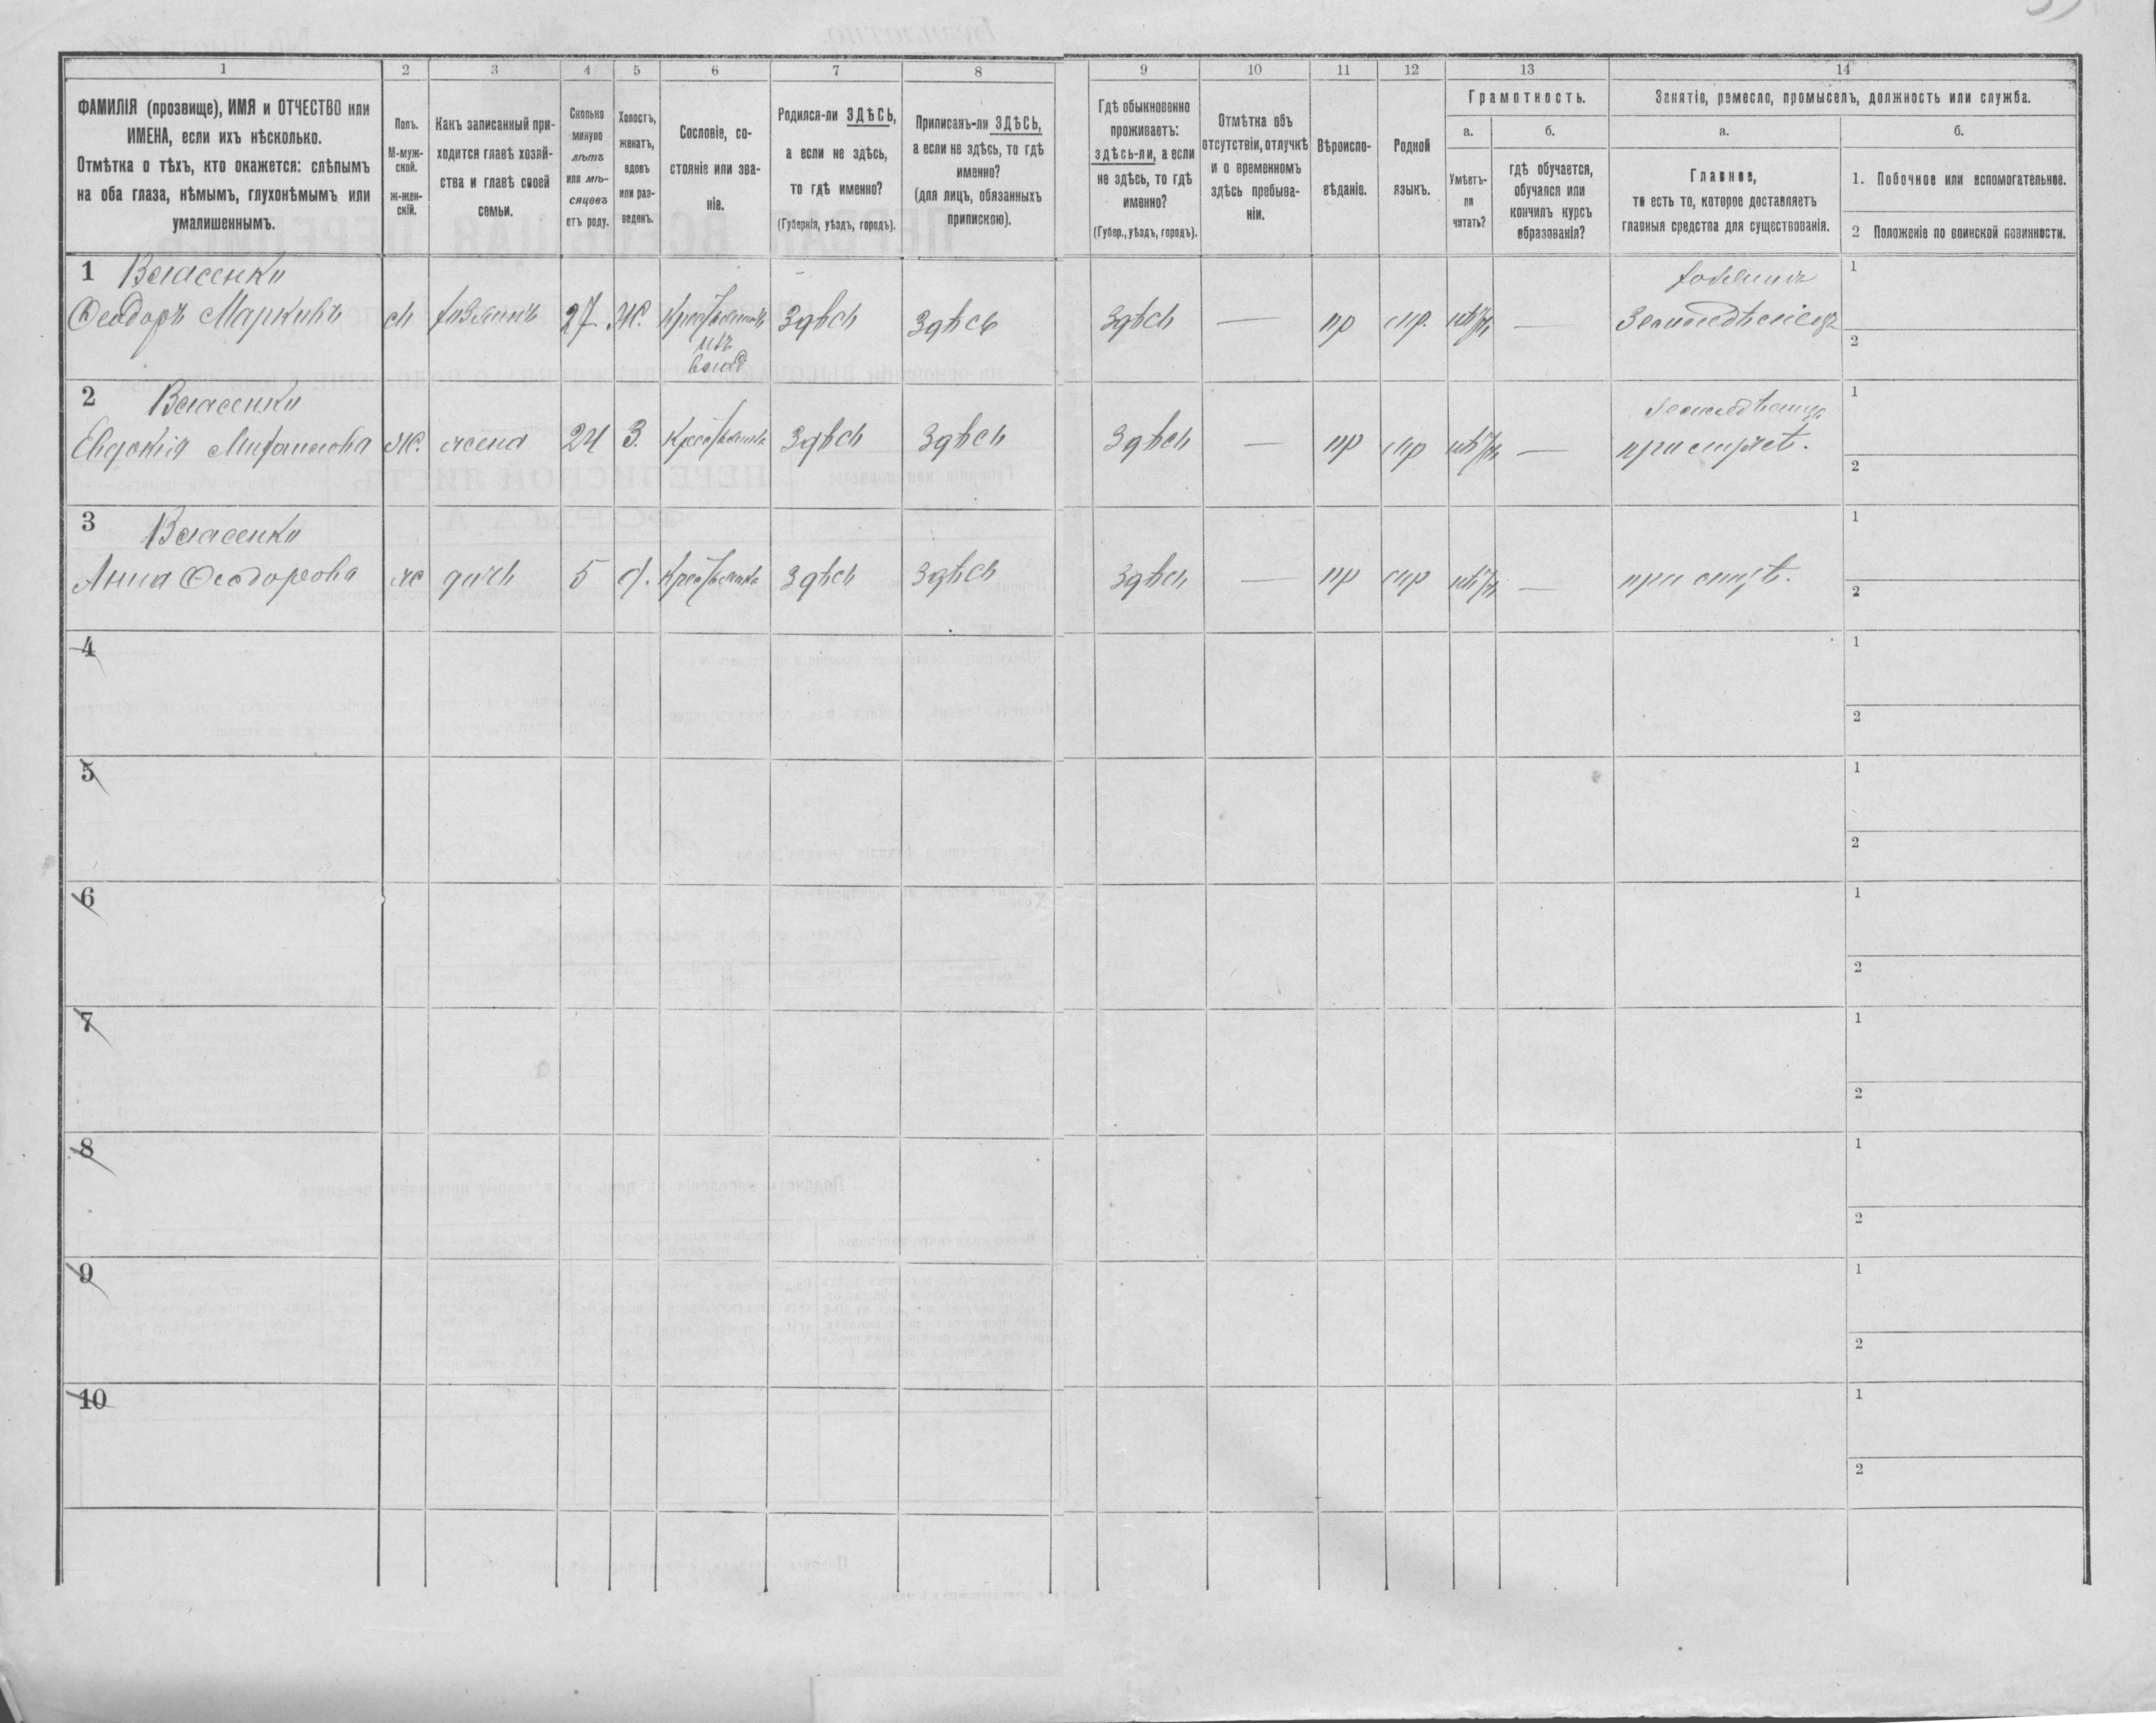 1
2
3
4
5
6
7
8
9
10
11
12
13
14
ФАМИЛІЯ (прозвище), ИМЯ и ОТЧЕСТВО или
ИМЕНА, если ихъ нѣсколько.
Отмѣтка о тѣхъ, кто окажется: слѣпымъ
на оба глаза, нѣмымъ, глухонѣмымъ или
умалишеннымъ.
Полъ.
М-муж-
ской.
ж-жен-
скій.
Какъ записанный при-
ходится главѣ хозяй-
ства и главѣ своей
семьи.
Сколько
минуло
лѣтъ
или мѣ-
сяцевъ
отъ роду.
Холостъ,
женатъ,
вдовъ
или раз-
веденъ.
Сословіе, со-
стояніе или зва-
ніе.
Родился-ли ЗДѢСЬ,
а если не здѣсь,
то гдѣ именно?
(Губернія, уѣздъ, городъ).
Приписанъ-ли ЗДѢСЬ,
а если не здѣсь, то гдѣ
именно?
(для лицъ, обязанныхъ
припискою).
Гдѣ обыкновенно
проживаетъ:
здѣсь-ли, а если
не здѣсь, то гдѣ
именно?
(Губер., уѣздъ, городъ).
Отмѣтка объ
отсутствіи, отлучкѣ
и о временномъ
здѣсь пребыва-
ніи.
Вѣроиспо-
вѣданіе.
Родной
языкъ.
Грамотность.
а.
б.
Умѣетъ-
ли
читать?
гдѣ обучается,
обучался или
кончилъ курсъ
образованія?
Занятіе, ремесло, промыселъ, должность или служба.
а.
б.
Главное,
то есть то, которое доставляетъ
главныя средства для существованія.
1. Побочное или вспомогательное.
2 Положеніе по воинской повинности.
1 Власенко
Ѳеодоръ Марковъ м хозяинъ 27 Ж. Крестьянинъ здѣсь здѣсь здѣсь — пр мр. нѣтъ — Земледѣлецъ
изъ
влад
хозяинъ
1
2
2 Власенко
Евдокія Михаилова Ж. жена 24 З. Крестьянка здѣсь здѣсь здѣсь — пр мр нѣтъ — при мужѣ.
1
2
3 Власенко
Анна Ѳеодорова ж дочь 5 д. Крестьянка здѣсь здѣсь здѣсь — пр мр нѣтъ — при
1
2
4
1
2
5
1
2
6
1
2
7
1
2
8
1
2
9
1
2
10
1
2